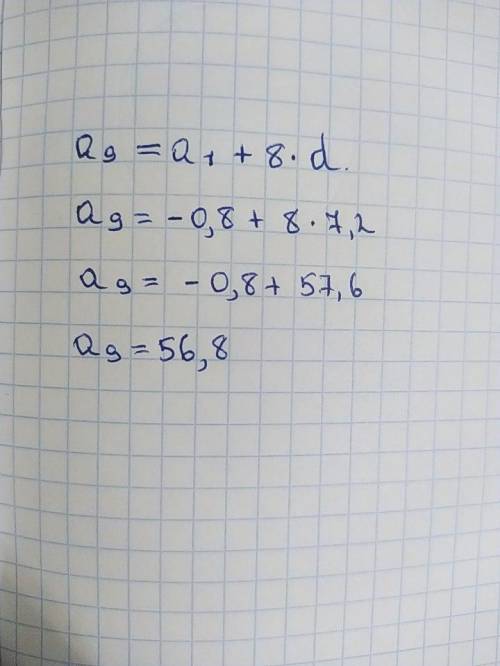 a₉ = a₁ + 8 · d.
a₉ = -0,8 + 8 · 7,2
a₉ = -0,8 + 57,6
a₉ = 56,8